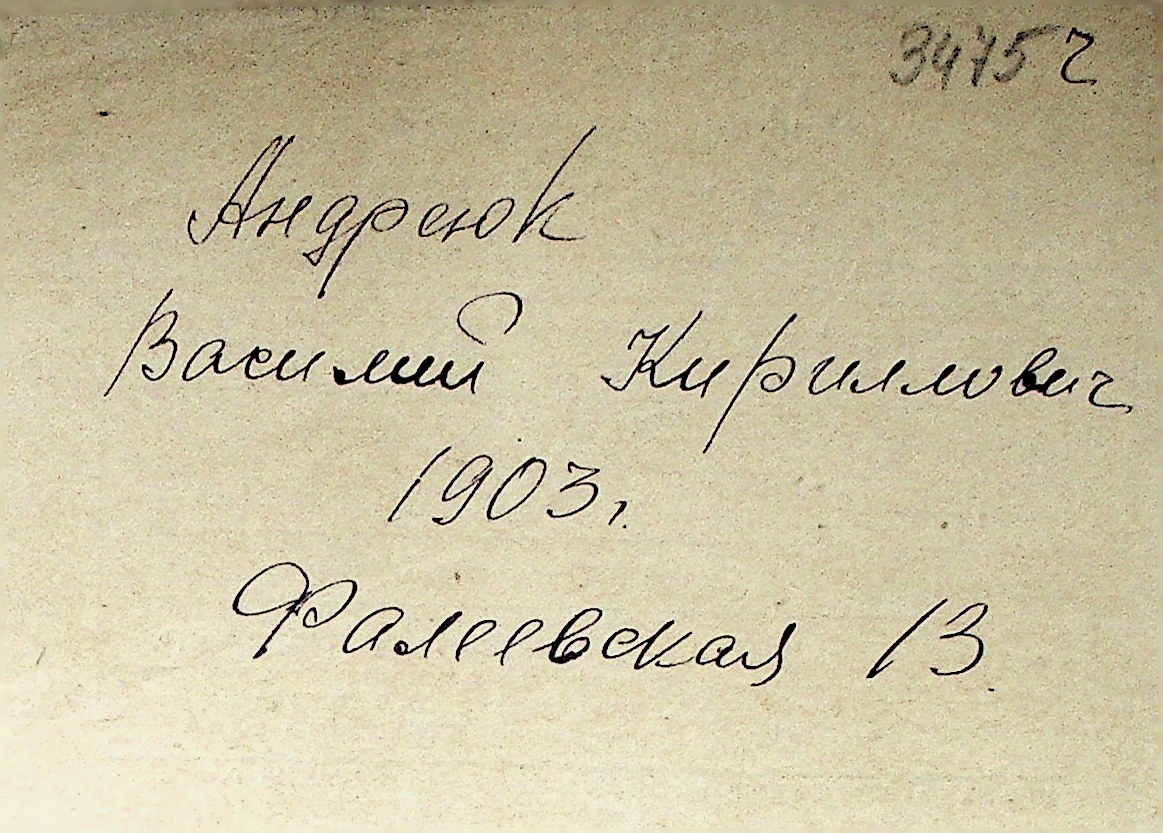 3475 ч
Андреюк
Василий Кириллович
1903г.
Фалеевская 13.